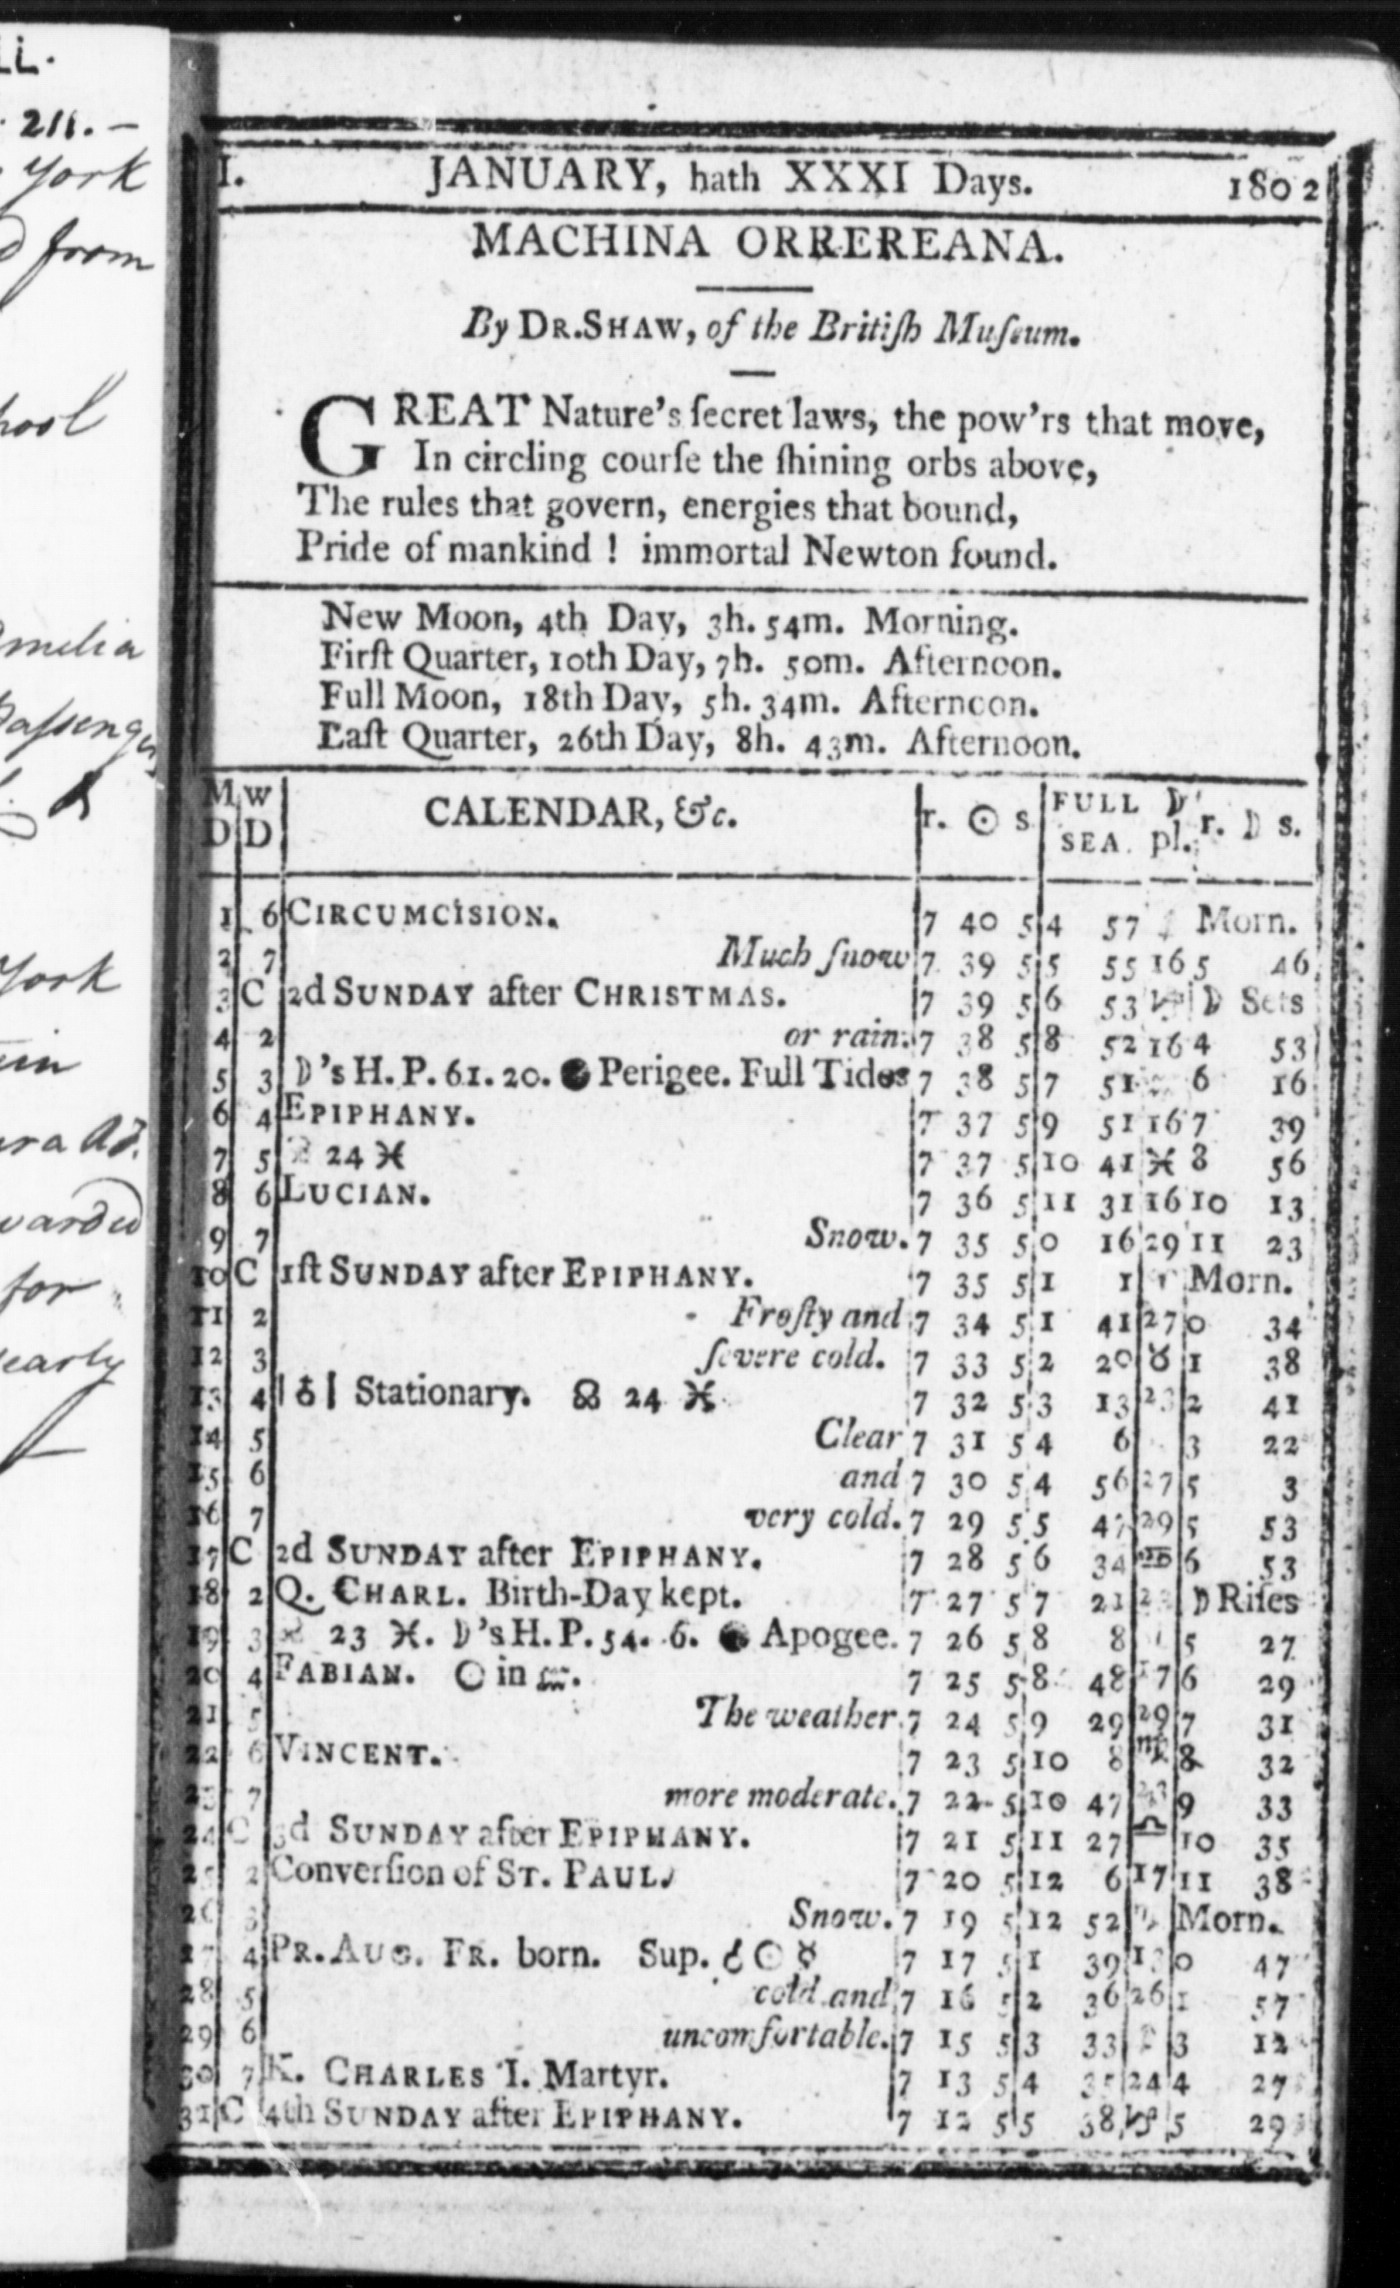 LL.
211.—
York
from
hool
melia
Passenger
&
York
ura Ad.
warded
for
early
I. JANUARY, hath XXXI Days. 1802
MACHINA ORREREANA.
By DR. SHAW, of the Britiſh Muſeum.
GREAT Nature's ſecret laws, the pow'rs that move,
In circling courſe the ſhining orbs above,
The rules that govern, energies that bound,
Pride of mankind ! immortal Newton found.
New Moon, 4th Day, 3h. 54m. Morning.
Firſt Quarter, 10th Day, 7h. 50m. Afternoon.
Full Moon, 18th Day, 5h. 34m. Afternoon.
Laſt Quarter, 26th Day, 8h. 43m. Afternoon.
M D W D CALENDAR, &c. r. ☉ s FULL SEA. ☽' pl. r. ☽ s.
1 6 CIRCUMCISION. 7 40 5 4 57 Morn.
2 7 Much ſnow 7 39 5 5 55 16 5 46
3 C 2d SUNDAY after CHRISTMAS. 7 39 5 6 53 ♑ ☽ Sets
4 2 or rain. 7 38 5 8 52 16 4 53
5 3 ☽'s H. P. 61. 20. Perigee. Full Tides 7 38 5 7 51 6 16
6 4 EPIPHANY. 7 37 5 9 51 16 7 39
7 5 24 ♓ 7 37 5 10 41 ♓ 8 56
8 6 LUCIAN. 7 36 5 11 31 16 10 13
9 7 Snow. 7 35 5 0 16 29 11 23
10 C 1ſt SUNDAY after EPIPHANY. 7 35 5 1 1 ♈ Morn.
11 2 Froſty and 7 34 5 1 41 27 0 34
12 3 ſevere cold. 7 33 5 2 20 ♉ 1 38
13 4 | ♁ | Stationary. ☊ 24 ♓ 7 32 5 3 13 23 2 41
14 5 Clear 7 31 5 4 6 3 22
15 6 and 7 30 5 4 56 27 5 3
16 7 very cold. 7 29 5 5 47 29 5 53
17 C 2d SUNDAY after EPIPHANY. 7 28 5 6 34 6 53
18 2 Q. CHARL. Birth-Day kept. 7 27 5 7 21 23 ☽ Riſes
19 3 23 ♓. ☽'s H. P. 54. 6. Apogee. 7 26 5 8 8 5 27
20 4 FABIAN. ☉ in ♒. 7 25 5 8 48 17 6 29
21 5 The weather 7 24 5 9 29 29 7 31
22 6 VINCENT. 7 23 5 10 8 ♍ 8 32
23 7 more moderate. 7 22 5 10 47 23 9 33
24 C 3d SUNDAY after EPIPHANY. 7 21 5 11 27 ♎ 10 35
25 2 Converſion of ST. PAUL. 7 20 5 12 6 17 11 38
26 3 Snow. 7 19 5 12 52 ♏ Morn.
27 4 PR. AUG. FR. born. Sup. ☌ ☉ ☿ 7 17 5 1 39 13 0 47
28 5 cold and 7 16 5 2 36 26 1 57
29 6 uncomfortable. 7 15 5 3 33 3 12
30 7 K. CHARLES I. Martyr. 7 13 5 4 35 24 4 27
31 C 4th SUNDAY after EPIPHANY. 7 12 5 5 38 ♑ 5 29